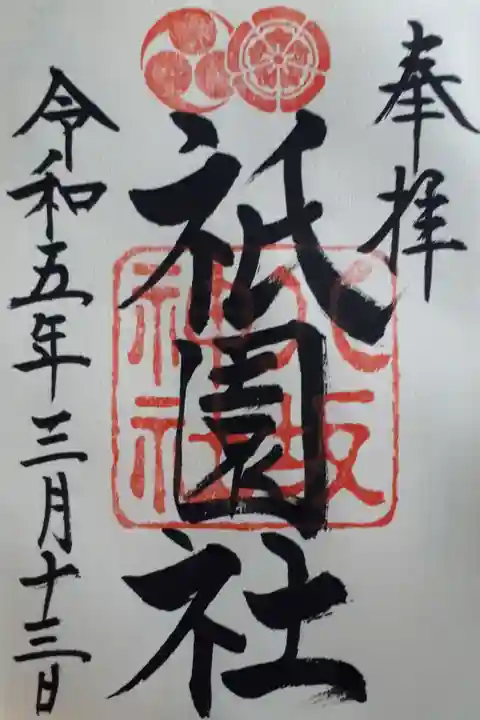 奉拝
祇園社
八坂神社
令和五年三月十三日